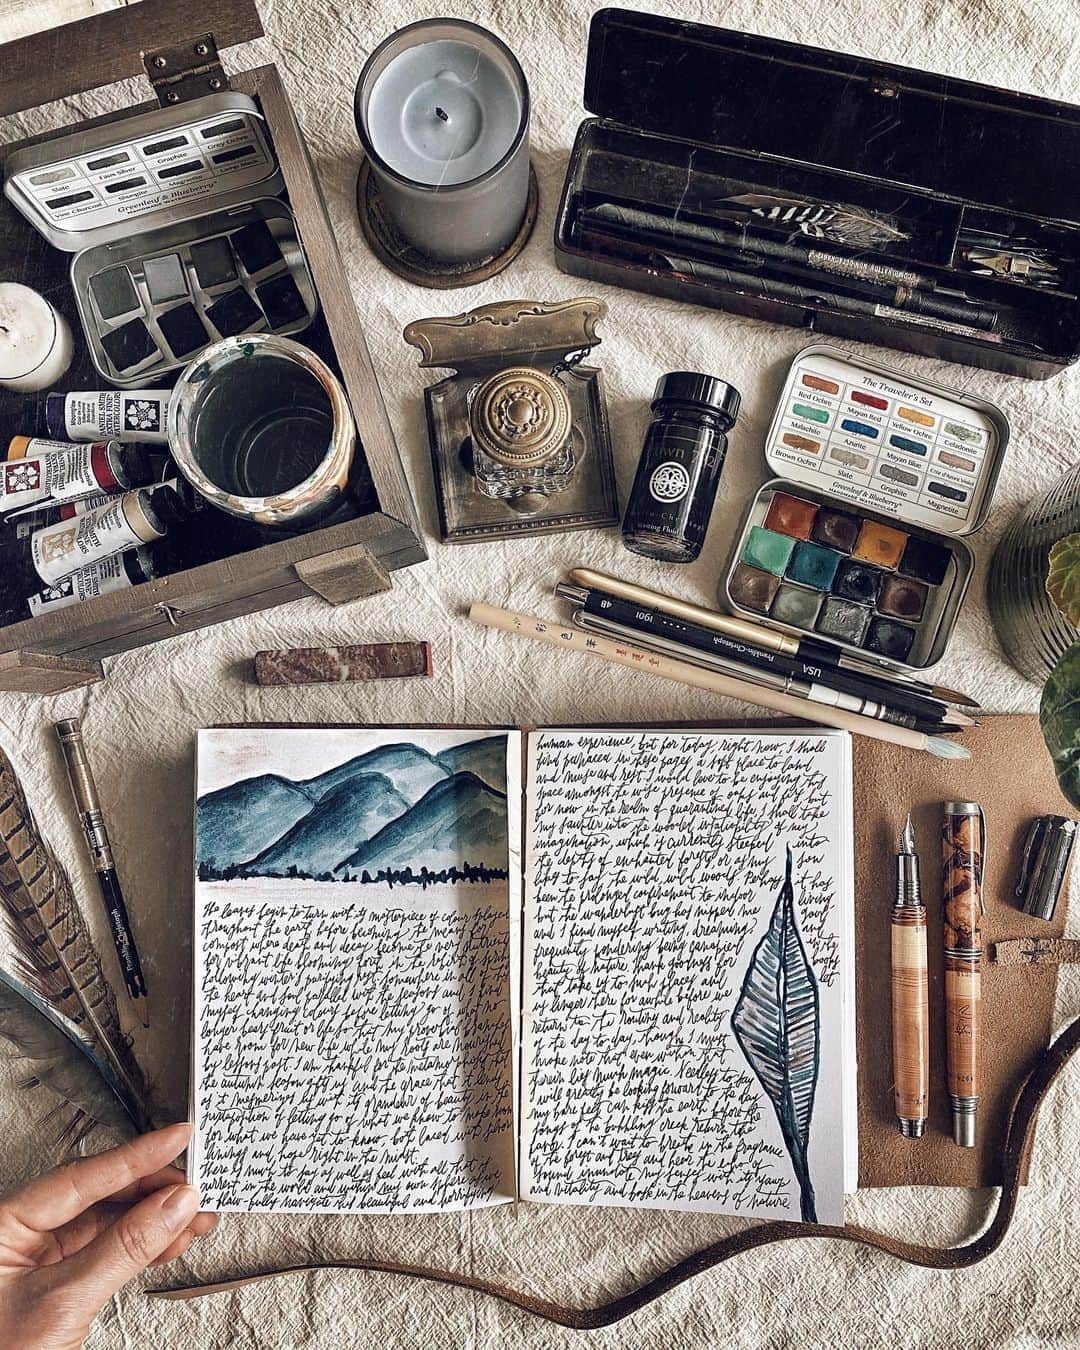 Slate
Faux Silver
Graphite
Grey Ochre
Vine Charcoal
Shungite
Magnetite
Lamp Black
Greenleaf & Blueberry™
HANDMADE WATERCOLORS
DANIEL SMITH
EXTRA FINE™
WATERCOLORS
The Traveler's Set
Red Ochre
Mayan Red
Yellow Ochre
Celadonite
Malachite
Azurite
Mayan Blue
Côte d'Azure Violet
Brown Ochre
Slate
Graphite
Magnetite
Greenleaf & Blueberry™
HANDMADE WATERCOLORS
Writing Fluid
4B
1901
Franklin-Christoph
USA
Franklin-Christoph
The leaves begin to turn with its masterpiece of colour splayed
throughout the earth before becoming the means for
compost where death and decay become the very nutrients
for vibrant life blooming forth in the
following winter's purifying rest. Somewhere
the heart and soul parallel with the seasons and I find
myself changing colours before letting go of what no
longer bears fruit or life so that my
have room for new life while my roots are nourished
by lessons past. I am thankful for the metamorphosis that
the autumn season gifts us and the grace that it lends
as it mesmerizes us with its grandeur of beauty in the
juxtaposition of letting go of what we know to make room
for what we have yet to know, both laced with silver
linings and hope right in the midst.
There is much to say as well as feel with all that is
current in the world and within my own sphere as we
so flaw-fully navigate this beautiful and horrifying
human experience, but for today, right now, I shall
find panacea in these pages, a soft place to land
and muse and rest. I would love to be enjoying this
space amongst the wise presence of oaks and pines but
for now in the realm of quarantined life, I shall take
my saunter into the wooded infallibility of my
imagination, which is currently steeped into
the depths of enchanted forests, or as my son
likes to say, the wild, wild woods. Perhaps it has
been the prolonged confinement to indoor living
but the wanderlust bug has nipped me good
and I find myself writing, dreaming, and
frequently pondering being canopied
beauty of nature. Thank goodness for books
that take us to such places and let
us linger there for awhile before we
return to the routine and reality
of the day to day, though I must
make note that even within that
there is much magic. Needless to say
I will greatly be looking forward to the day
my bare feet can kiss the earth before the
songs of the bubbling creek return the
favor. I can't wait to breathe in the fragrance
of the forest and trees and hear the echo of
sound inundate my senses with its
and vitality and bask in the heavens of nature.